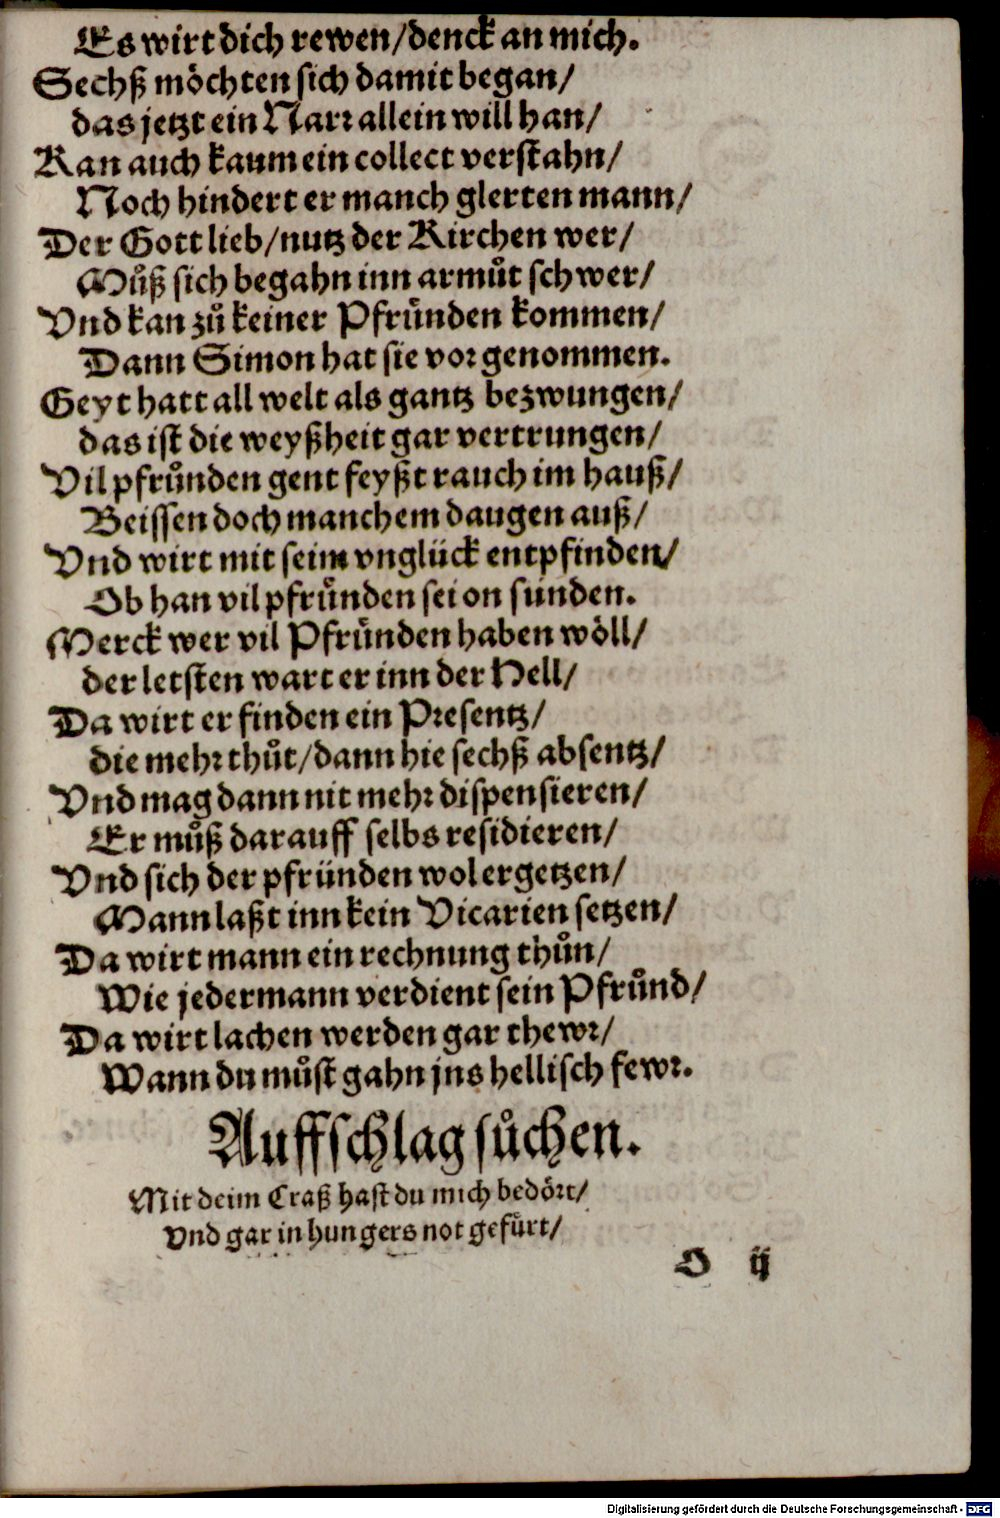 Es wirt dich rewen/denck an mich.
Sechß möchten sich damit began/
das jetzt ein Narr allein will han/
Kan auch kaum ein collect verstahn/
Noch hindert er manch glerten mann/
Der Gott lieb/nutz der Kirchen wer/
Muͦß sich begahn inn armuͦt schwer/
Vnd kan zuͦ keiner Pfruͦnden kommen/
Dann Simon hat sie vor genommen.
Geyt hatt all welt als gantz bezwungen/
das ist die weyßheit gar vertrungen/
Vil pfruͦnden gent feyßt rauch im hauß/
Beissen doch manchem daugen auß/
Vnd wirt mit seim vnglück entpfinden/
Ob han vil pfruͦnden sei on sünden.
Merck wer vil Pfruͦnden haben wöll/
der letsten wart er inn der Hell/
Da wirt er finden ein Presentz/
die mehr thuͦt/dann hie sechß absentz/
Vnd mag dann nit mehr dispensieren/
Er muͦß darauff selbs residieren/
Vnd sich der pfründen wol ergetzen/
Mann laßt inn kein Vicarien setzen/
Da wirt mann ein rechnung thuͦn/
Wie jedermann verdient sein Pfruͦnd/
Da wirt lachen werden gar thewr/
Wann du muͦst gahn jns hellisch fewr.
Auffschlag suͦchen.
Mit deim Craß hast du mich bedört/
Vnd gar in hungers not gefürt/
O ij
Digitalisierung gefördert durch die Deutsche Forschungsgemeinschaft - DFG